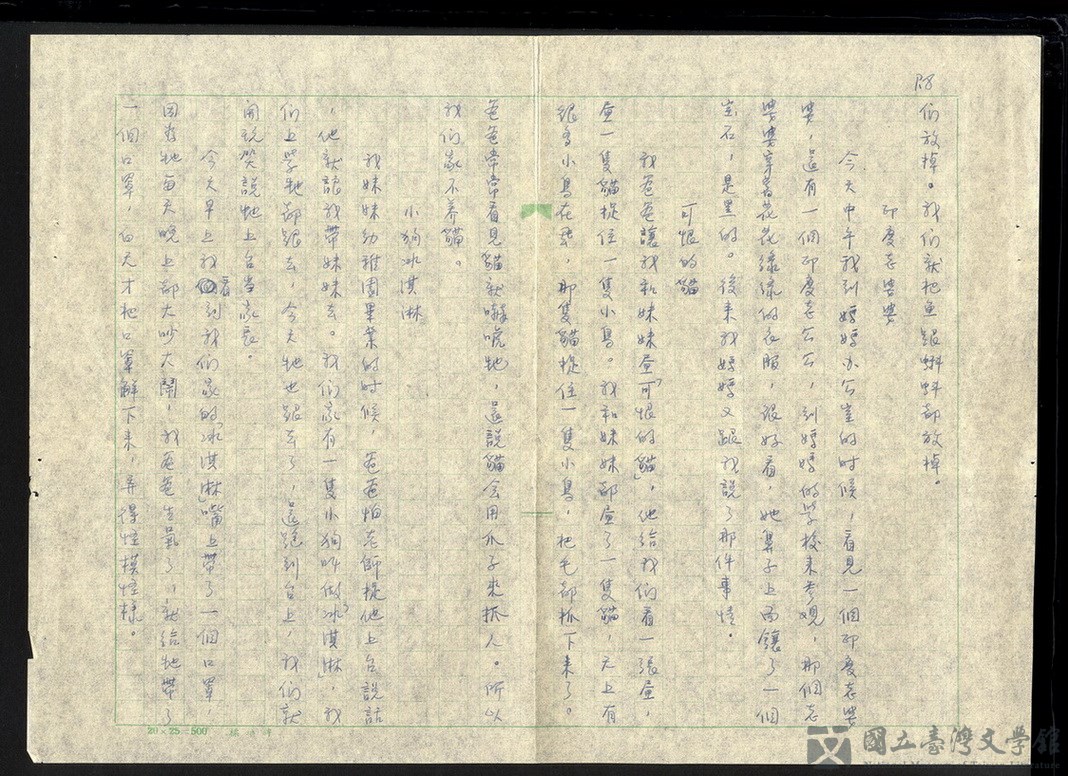 P.8
們放掉。我們就把魚跟蝌蚪都放掉。
印度老婆婆
今天中午我到媽媽办公室的时候，看見一個印度老婆
婆，還有一個印度老公公，到媽媽的学校来參观，那個老
婆婆穿着花花綠綠的衣服，很好看，她鼻子上面鑲了一個
宝石，是黑的。後来我媽媽又跟我說了那件事情。
可恨的貓
我爸爸讓我和妹妹画「可恨的貓」，他給我們看一張画，
画一隻貓捉住一隻小鳥。我和妹妹都画了一隻貓，天上有
很多小鳥在飛，那隻貓捉住一隻小鳥，把毛都抓下来了。
爸爸常常看見貓就嚇唬牠，還說貓会用爪子来抓人。所以
我們家不养貓。
小狗冰淇淋
我妹妹幼稚園畢業的时候，爸爸怕老師捉他上台說話
，他就讓我帶妹妹去。我們家有一隻小狗叫做「冰淇淋」，我
們上学牠都跟去，今天牠也跟来了，還跑到台上，我們就
開玩笑說牠上台当家長。
今天早上我看到我們家的「冰淇淋」嘴上帶了一個口罩，
因为牠每天晚上都大吵大鬧，我爸爸生氣了，就給牠帶了
一個口罩，白天才把口罩解下来，弄得怪模怪樣。
20×25=500
國立臺灣文學館
National Museum of Taiwan Literature